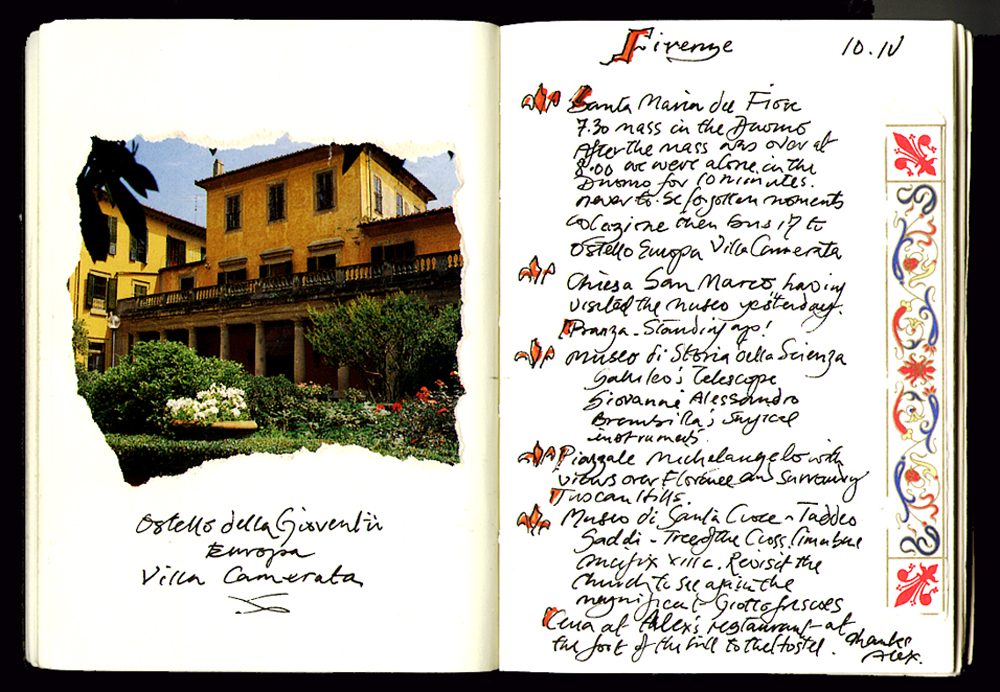 Ostello della Gioventù
Europa
Villa Camerata
Firenze 10.IV
Santa Maria del Fiore
7.30 mass in the Duomo
After the mass was over at
8.00 we were alone in the
Duomo for 10 minutes.
never to be forgotten moments
colazione then bus 17 to
Ostello Europa Villa Camerata
Chiesa San Marco having
visited the museo yesterday.
Pranza - Standing up!
Museo di Storia della Scienza
Galileo's Telescope
Giovanni Alessandro
Brambilla's surgical
instruments.
Piazzale Michelangelo with
views over Florence and surrounding
Tuscan Hills.
Museo di Santa Croce - Taddeo
Gaddi - Tree of the Cross. Cimabue
crucifix XIII c. Revisit the
church to see again the
magnificent Giotto frescoes
Cena at Alex's restaurant - at
the foot of the hill to the Hostel. Thanks
Alex.